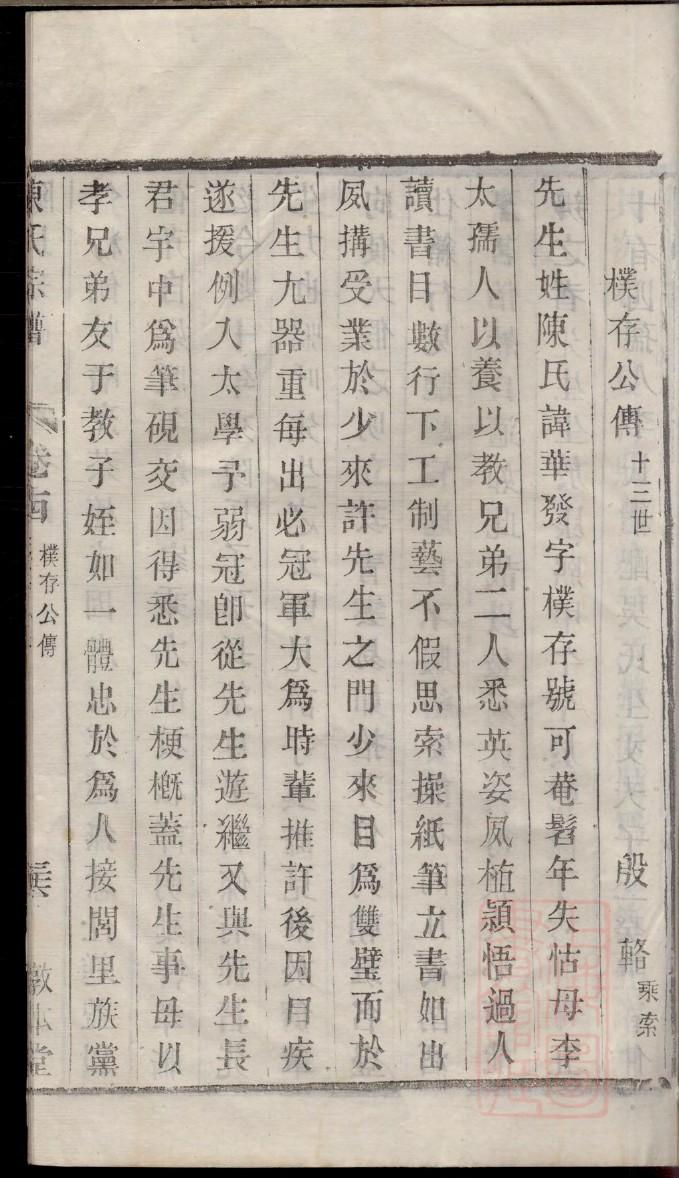 樸存公傳 十三世 殷輅 乘索
先生姓陳氏諱華發字樸存號可菴髫年失怙母李
太孺人以養以教兄弟二人悉英姿夙植頴悟過人
讀書目數行下工制藝不假思索操紙筆立書如出
夙搆受業於少來許先生之門少來目爲雙璧而於
先生尤器重每出必冠軍大爲時輩推許後因目疾
遂援例入太學予弱冠卽從先生遊繼又與先生長
君宇中爲筆硯交因得悉先生梗概蓋先生事母以
孝兄弟友于教子姪如一體忠於爲人接閭里族黨
陳氏宗譜 卷 樸存公傳 敦本堂